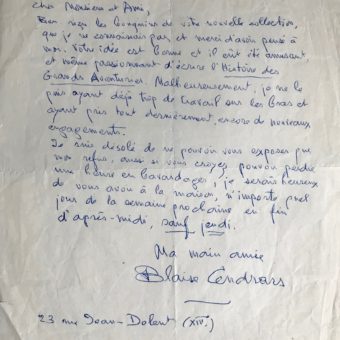 cher Monsieur et Ami,
Bien reçu les bouquins de votre nouvelle collection,
que je ne connaissais pas, et merci d'avoir pensé à
moi. Votre idée est bonne et il eût été amusant
et même passionnant d'écrire l'Histoire des
Grands Aventuriers. Malheureusement, je ne le
puis ayant déjà trop de travail sur les bras et
ayant pris tout dernièrement, encore de nouveaux
engagements.
Je suis désolé de ne pouvoir vous exposer que
mon refus, aussi si vous croyez pouvoir perdre
une heure en bavardages, je serais heureux
de vous avoir à la maison, n'importe quel
jour de la semaine prochaine en fin
d'après-midi, sauf jeudi.
Ma main amie
Blaise Cendrars
23 rue Jean-Dolent (XIVe)